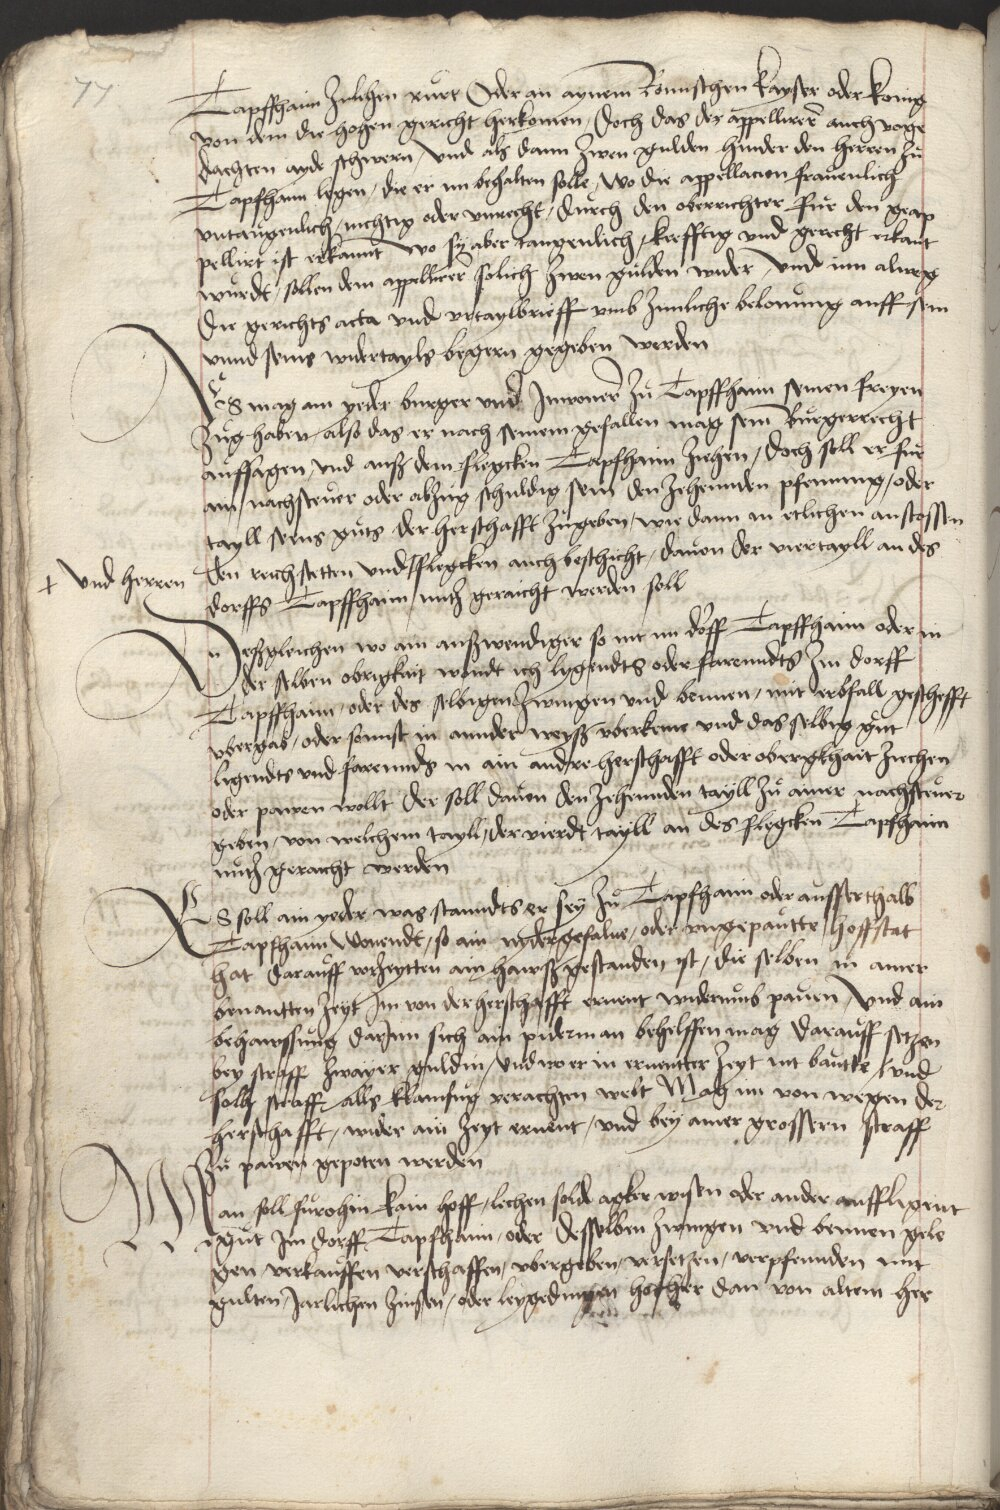 77
Tapffhaim Zulehen ruert Oder an aynem Romischen kayser oder konig
von dem die hohen gericht herkomen / Doch das der appellierer auch vorge
dachten ayde schweren / Vnd als dann zwen gulden hinder den herren zu
Tapfhaim legen / die er im behalten solle, Wo die appellacion frauenlich
vntaugenlich / nichtig oder vnrecht / durch den oberrichter fur den geap
pellirt ist erkannt Wo sy aber taugenlich / krefftig vnd gerecht erkant
wurdt / sollen dem appellierer solich zwen gulden wider / Vnd im alweg
die gerichts acta vnd vrtaylbrieff vmb zimliche belonung auff sein
vnnd seins widertayls begern gegeben werden
Es mag ain yeder burger vnd Inwoner zu Tapffhaim seinen freyen
Zug haben / also das er nach seinem gefallen mag sein Burgerrecht
auffsagen / Vnd auß dem flegcken Tapfhaim ziehen / Doch soll er fur
ain nachsteuer oder abzug schuldig sein den zehennden pfenning / oder
tayll seins guts der herschafft zugeben / wie dann in etlichen anstossen
+ vnd herren
den reichstetten vnd flegcken auch beschicht / dauon der viertayll an des
dorffs Tapffhaim nutz geraicht werden soll
Deßgleichen wo ain außwendiger so nit im dorff Tapffhaim oder in
der selben obrigkait wondt ich lygendts oder farenndts Im dorff
Tapffhaim / oder des selbigen zwingen vnd bennen / mit erbfall geschefft
vbergab / oder sonnst in annder weyß vberkeme vnd das selbig gut
ligendts vnd farennds in ain andre herschafft oder obergkhait ziechen
oder pawen wollt der soll dauon den zehennden tayll zu ainer nachsteuer
geben / von welchem tayll / der vierdt tayll an des flegcken Tapfhaim
nutz geraicht werden
Es soll ain yeder was stanndts er sey zu Tapfhaim oder ausserthalb
Tapfhaim Wonendt / so ain nydergefalne / oder vngepautte hoffstat
hat darauff vorzeytten ain hawß gestanden ist / die selben in ainer
benantten zeyt Im von der herschafft ernent widerumb pauen / Vnd ain
behawssung darinn sich ain piderman behelffen mag darauff setzen
bey straff zwayer guldin / Vnd wo er in ernentter zeyt nit bautte / vnd
solh straff alls klainfug verachten welt Mag im von wegen der
herschafft / wider ain zeyt ernent / vnd bey ainer grossern straff
zu pawen gepoten werden
Man soll furohin kain hoff / lechen solde agker wisen oder ander auffligent
gut Im dorff Tapfhaim / oder desselben zwingen vnd bennen gele
gen / verkauffen verschaffen / vbergeben / versetzen / verpfennden mit
gulten / Jarlichen zinsen / oder leypgedingen hocher dan von altem her